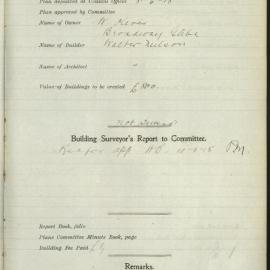 Plan deposited at Council Office
Plan approved by Committee
Name of Owner W.
Broadway Glebe
Name of Builder Walter Nelson
Name of Architect "
Value of Buildings to be erected £800.
Building Surveyor's Report to Committee.
Rec for app
Report Book, folio
Plans Committee Minute Book, page
Building Fee Paid
Remarks.